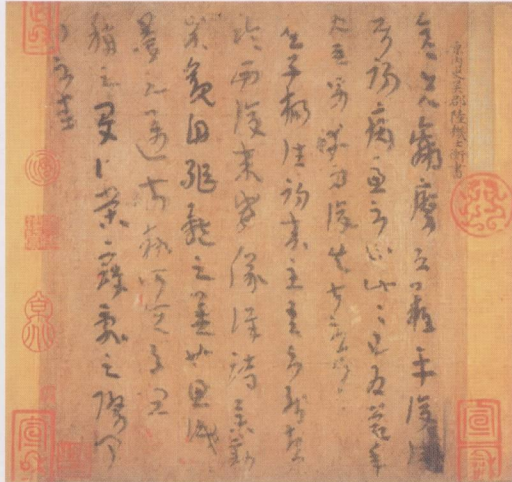 晉內史吳郡陸機士衡書
彦先羸瘵恐難平復往
屬初病慮不止此此已為慶承
使唯男幸為復失前憂耳
吳子楊往初來主吾不能盡
臨西復來威儀詳跱舉動
成觀自軀體之美也思識
量之邁前勢所恒有宜
稱之夏伯榮寇亂之際聞
問不悉